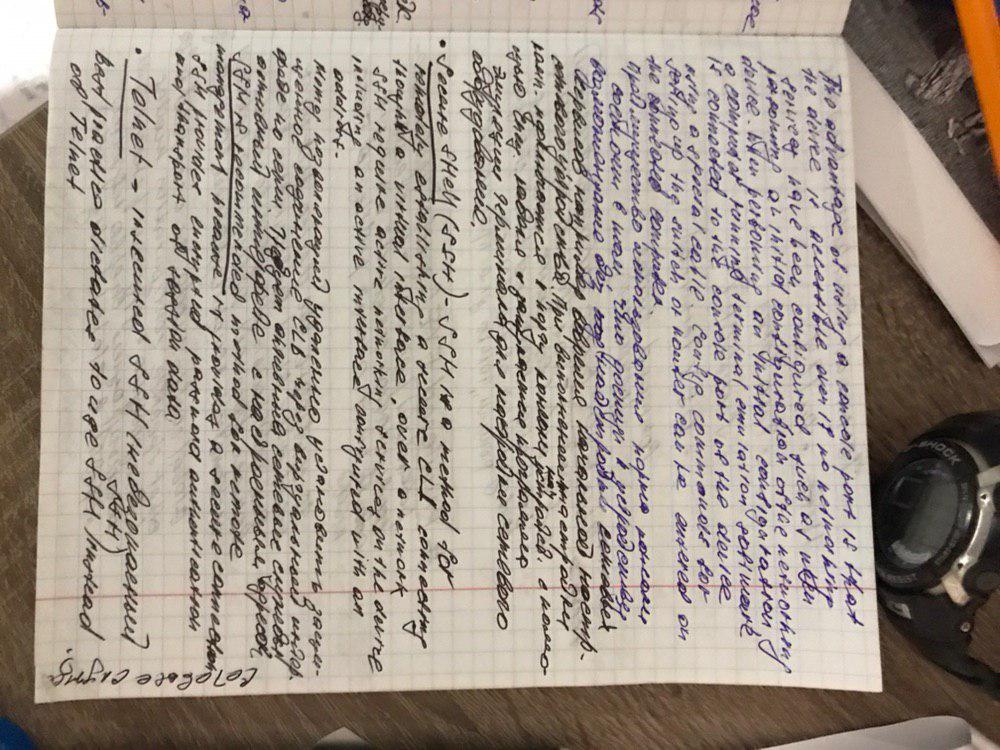 The advantage of using a console port is that
the device is accessible even if no networking
services have been configured, such as when
performing an initial configuration of the networking
device. When performing an initial configuration,
a computer running terminal emulation software
is connected to the console port of the device
using a special cable. Config. commands for
setting up the switch or router can be entered on
the connected computer.
Преимущество использования порта консоли
состоит в том, что доступ к устройству
возможен даже без
Первый например первая начальной настр-
сетевого устройства. При выполнении начальной
комп. подключается к порту консоли устройства с помо-
щью спец. кабеля и запускается программа
эмуляции терминала для настройки сетевого
оборудования.
• Secure Shell (SSH) - SSH is a method for
remotely establishing a secure CLI connection
through a virtual interface, over a network.
SSH require active networking services on the device
including an active interface configured with an
address.
метод позволяющий удаленно установить защи-
щенное соединение CLI через виртуальный интер-
фейс по сети. Требует активные сетевые службы,
активный интерфейс с настроенным адресом
SSH is recommended method for remote
management because it provides a secure connection.
SSH provides encrypted password authentication
and transport of session data
• Telnet - insecured SSH (незащищенный
SSH)
best practice dictates to use SSH instead
of Telnet